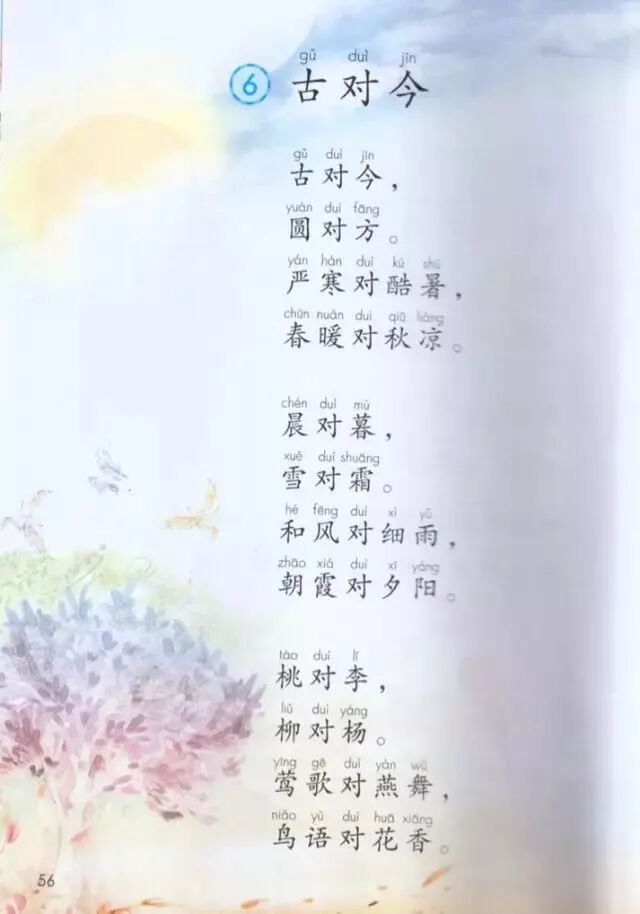 gǔ duì jīn
6 古对今
gǔ duì jīn
古对今，
yuán duì fāng
圆对方。
yán hán duì kù shǔ
严寒对酷暑，
chūn nuǎn duì qiū liáng
春暖对秋凉。
chén duì mù
晨对暮，
xuě duì shuāng
雪对霜。
hé fēng duì xì yǔ
和风对细雨，
zhāo xiá duì xī yáng
朝霞对夕阳。
táo duì lǐ
桃对李，
liǔ duì yáng
柳对杨。
yīng gē duì yàn wǔ
莺歌对燕舞，
niǎo yǔ duì huā xiāng
鸟语对花香。
56